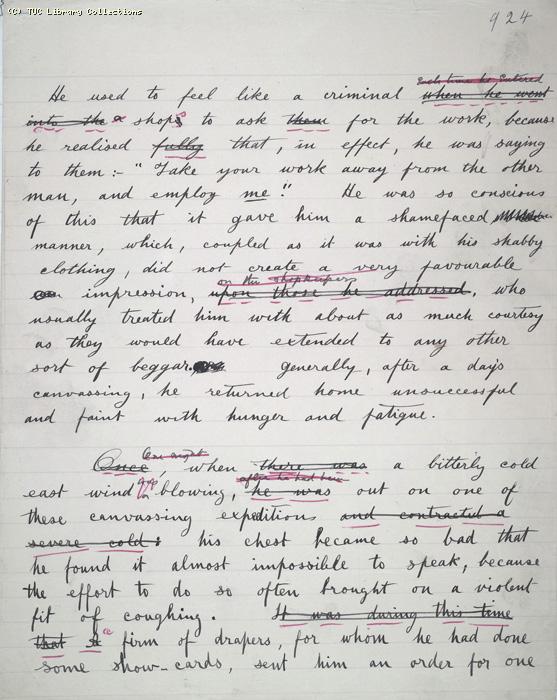 (C) TUC Library Collections
924
Each time he entered
He used to feel like a criminal when he went
into the a shops to ask them for the work, because
he realised fully that, in effect, he was saying
to them:- "Take your work away from the other
man, and employ me!" He was so conscious
of this that it gave him a shamefaced
manner, which, coupled as it was with his shabby
clothing, did not create a very favourable
on the shopkeepers
impression, upon those he addressed, who
usually treated him with about as much courtesy
as they would have extended to any other
sort of beggar. generally, after a day's
canvassing, he returned home unsuccessful
and faint with hunger and fatigue.
One night
Once, when there was a bitterly cold
after he had been
east wind blowing, he was out on one of
these canvassing expeditions and contracted a
severe cold: his chest became so bad that
he found it almost impossible to speak, because
the effort to do so often brought on a violent
fit of coughing. It was during this time
that a firm of drapers, for whom he had done
some show-cards, sent him an order for one